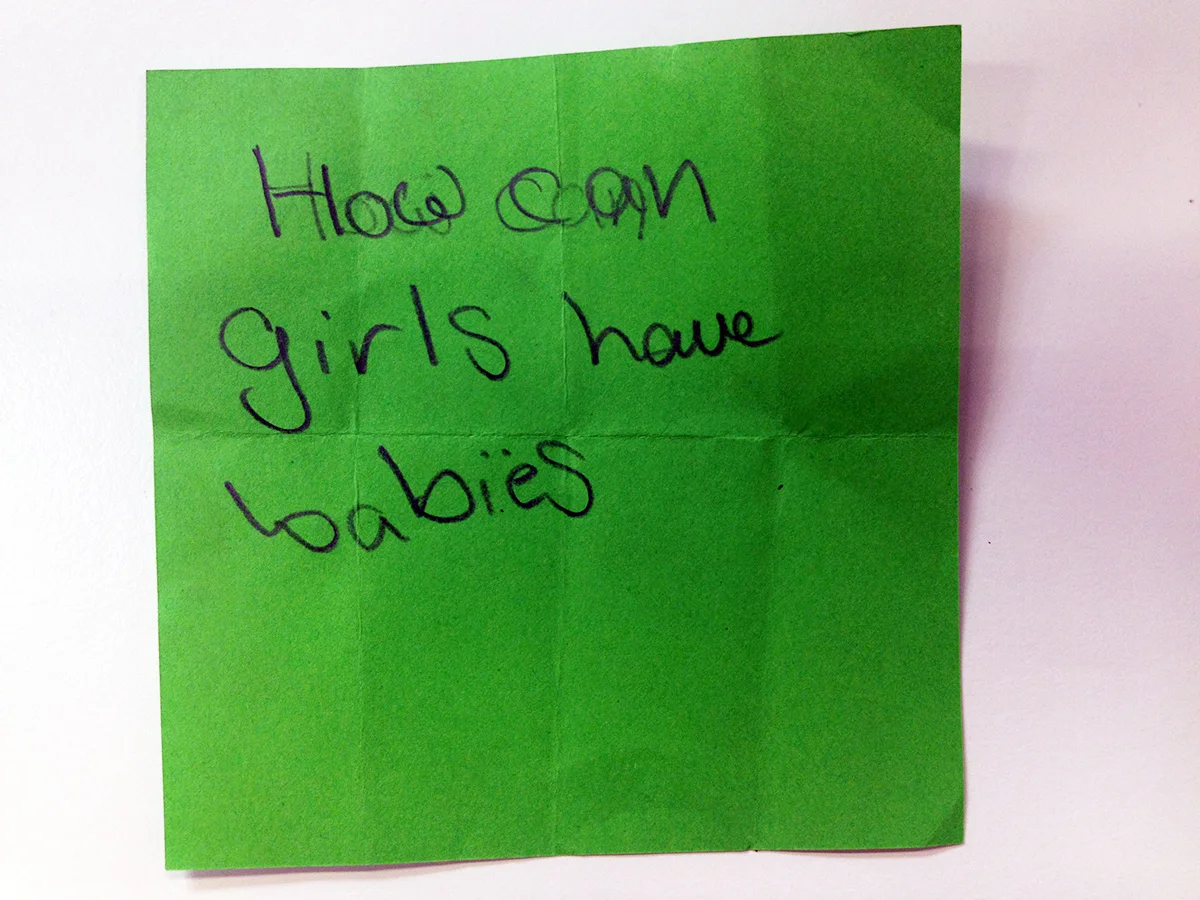 How can
girls have
babies